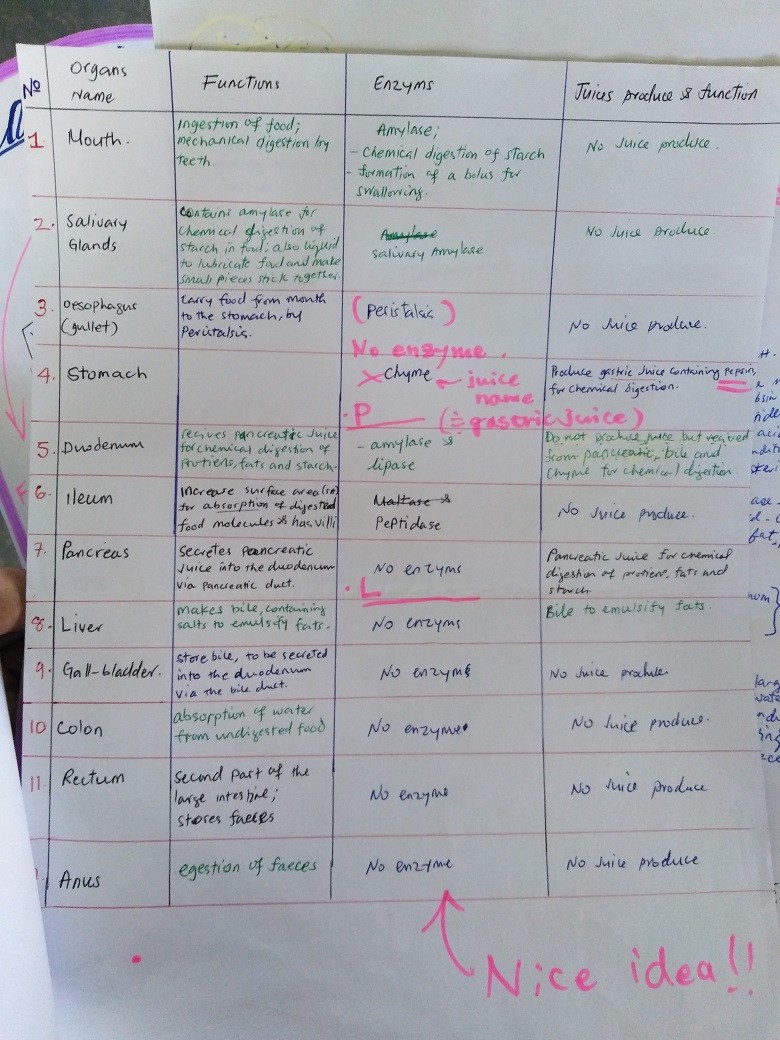 Nº
Organs
Name
Functions
Enzyms
Juices produce & function
1
Mouth.
ingestion of food;
mechanical digestion by
teeth.
Amylase;
- Chemical digestion of starch
- formation of a bolus for
swallowing.
No Juice produce.
2.
Salivary
Glands
Contains amylase for
Chemical digestion of
starch in food; also liquid
to lubricate food and make
small pieces stick together.
Amylase
salivary Amylase
No Juice produce.
3.
Oesophagus
(gullet)
Carry food from mouth
to the stomach, by
Peristalsis.
(peristalsis)
No enzyme.
No Juice produce.
4.
Stomach
Chyme
juice
name
P (∴ gastric Juice)
Produce gastric Juice containing Pepsin,
for Chemical digestion.
5.
Duodenum
recives pancreatic Juice
for chemical digestion of
protiens, fats and starch.
- amylase &
lipase
Do not produce juice but recived
from pancreatic, bile and
Chyme for chemical digestion
6.
Ileum
Increase surface area (sa)
for absorption of digested
food molecules & has villi
Maltase &
Peptidase
No Juice produce.
7.
Pancreas
Secretes pancreatic
Juice into the duodenum
via pancreatic duct.
No enzyms
L
Pancreatic Juice for chemical
digestion of protiens, fats and
starch.
8.
Liver
makes bile, containing
salts to emulsify fats.
No enzyms
Bile to emulsify fats.
9.
Gall-bladder.
store bile, to be secreted
into the duodenum
via the bile duct.
No enzyms
No Juice produce
10
Colon
absorption of water
from undigested food
No enzyme
No Juice produce.
11.
Rectum
Second part of the
large intestine;
stores faeces
No enzyme
No Juice produce
Anus
egestion of faeces
No enzyme
No Juice produce
Nice idea!!